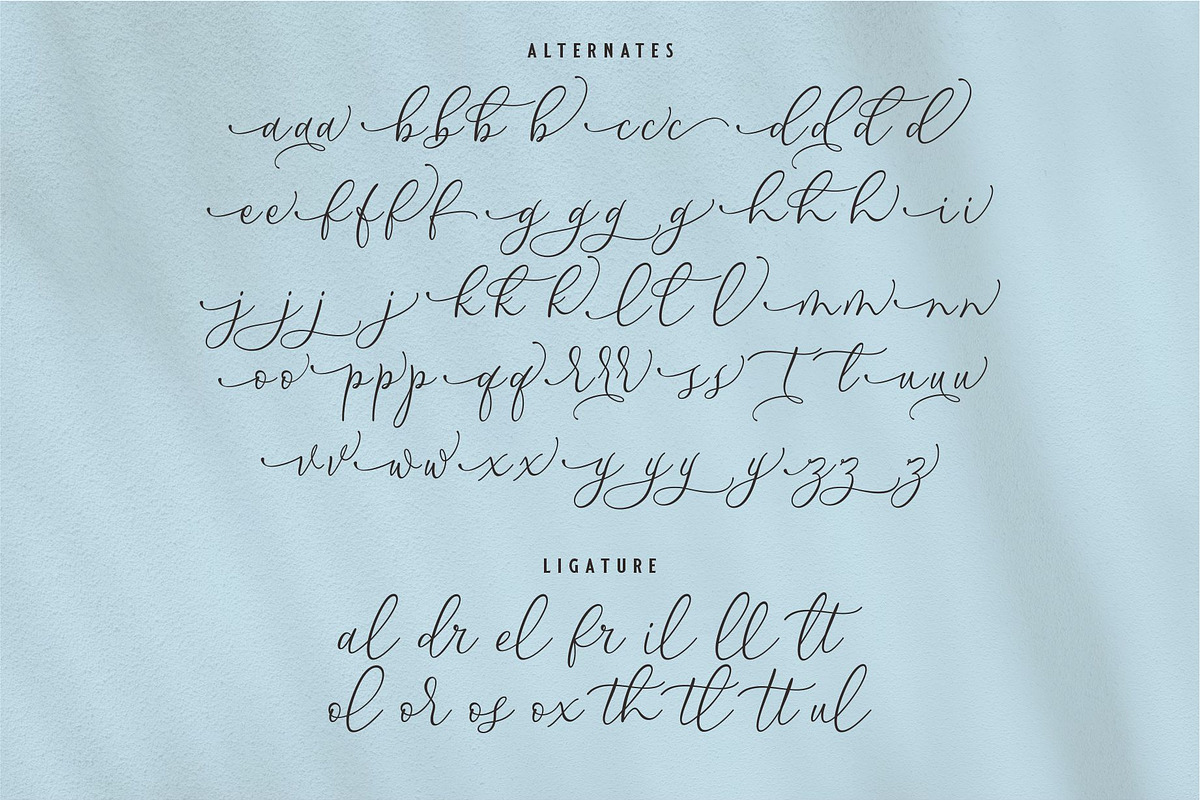 ALTERNATES
aaa bbbb ccc dddd
ee ffff gggg hhh ii
jjjj kkk lll mm nn
oo ppp qq rrr ss tt uuu
vv ww xx yyyy zzz
LIGATURE
al dr el fr il ll lt
ol or os ox th tl tt ul